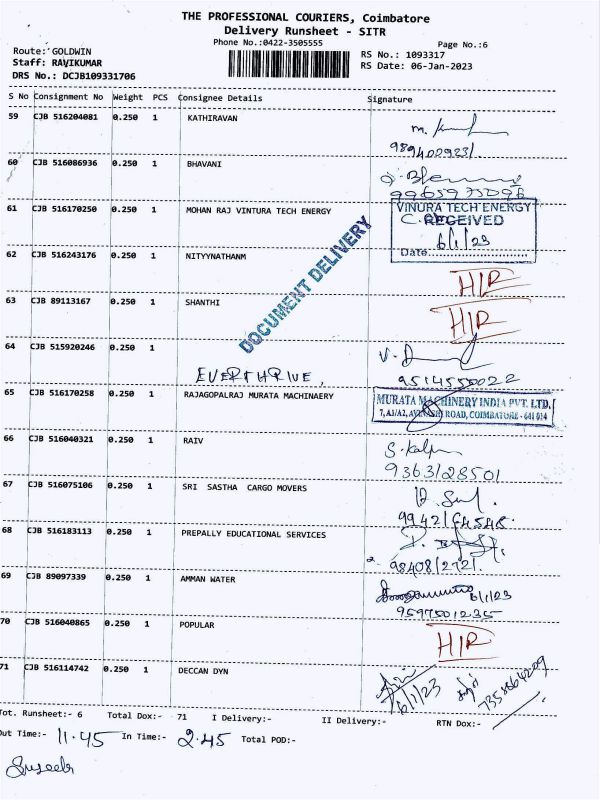 THE PROFESSIONAL COURIERS, Coimbatore
Delivery Runsheet - SITR
Phone No.:0422-3505555
Page No.:6
Route: GOLDWIN
RS No.: 1093317
Staff: RAVIKUMAR
RS Date: 06-Jan-2023
DRS No.: DCJB109331706
S No Consignment No Weight PCS Consignee Details Signature
59 CJB 516204081 0.250 1 KATHIRAVAN
60 CJB 516086936 0.250 1 BHAVANI
61 CJB 516170250 0.250 1 MOHAN RAJ VINTURA TECH ENERGY
VINURA TECH ENERGY
RECEIVED
6/1/23
Date
62 CJB 516243176 0.250 1 NITYYNATHANM
HIR
DOCUMENT DELIVERY
63 CJB 89113167 0.250 1 SHANTHI
HIR
64 CJB 515920246 0.250 1
EVERTHRIVE,
9514550022
65 CJB 516170258 0.250 1 RAJAGOPALRAJ MURATA MACHINAERY
MURATA MACHINERY INDIA PVT. LTD.
7, A1/A2, AVINASHI ROAD, COIMBATORE - 641 014
66 CJB 516040321 0.250 1 RAIV
9363128501
67 CJB 516075106 0.250 1 SRI SASTHA CARGO MOVERS
68 CJB 516183113 0.250 1 PREPALLY EDUCATIONAL SERVICES
69 CJB 89097339 0.250 1 AMMAN WATER
6/1/23
9597501235
70 CJB 516040865 0.250 1 POPULAR
HIR
71 CJB 516114742 0.250 1 DECCAN DYN
6/1/23
Tot. Runsheet:- 6 Total Dox:- 71 I Delivery:- II Delivery:- RTN Dox:-
Out Time:- 11.45 In Time:- 2.45 Total POD:-